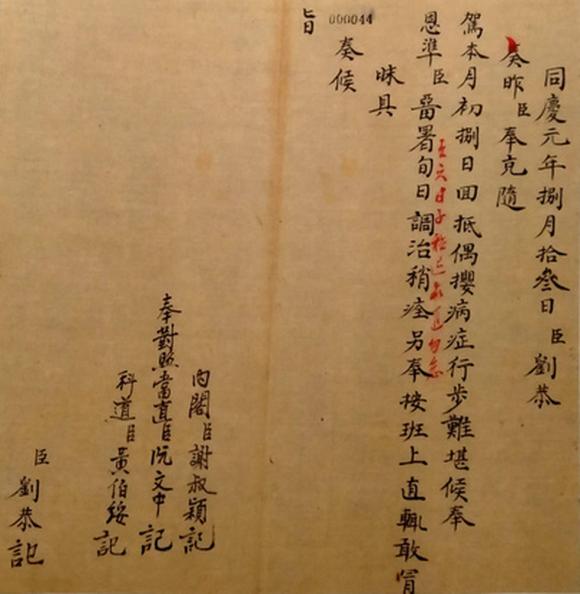 同慶元年捌月拾叁日臣劉恭
奏昨臣奉充隨
駕本月初捌日回抵偶攖病症行步難堪候奉
恩準臣咼署旬日調治稍痊另奉接班上直輒敢冒
昧具
奏候
旨
000044
内閣臣謝叔穎記
奉對照當直臣阮文中記
科道臣黃伯綏記
臣劉恭記